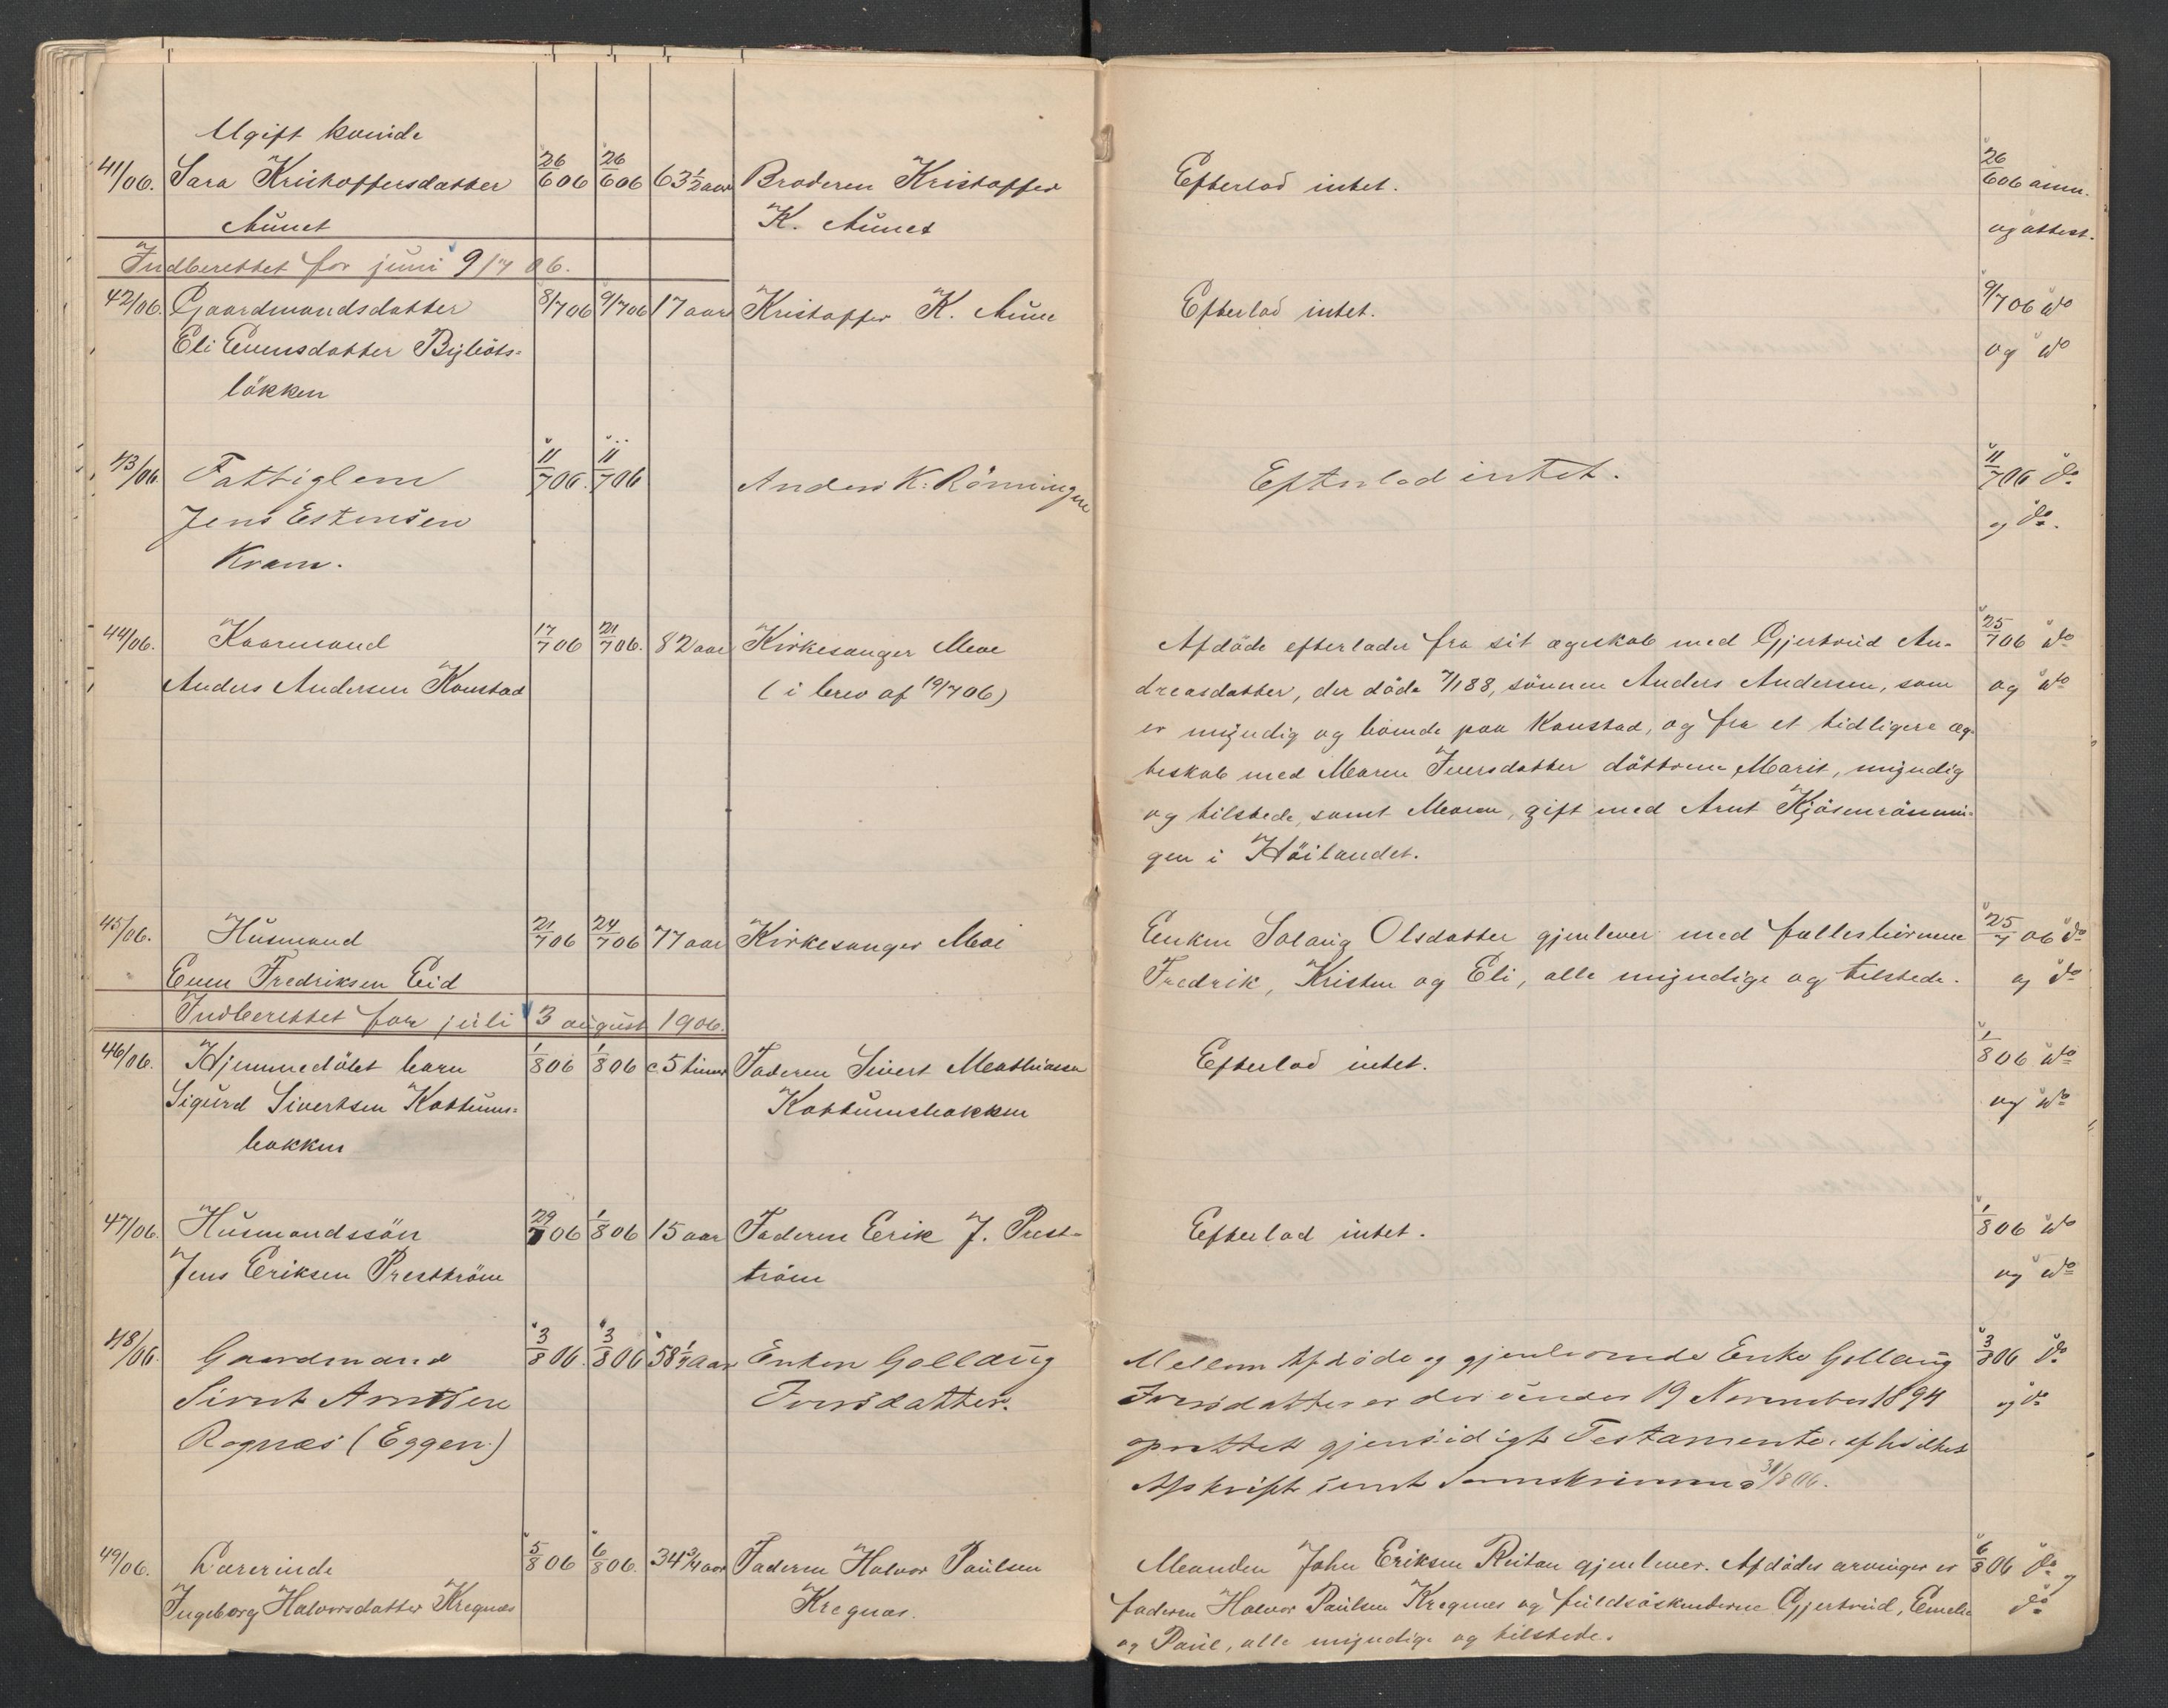 Ugift kvinde
41/06. Sara Kristoffersdatter 26/6 06 26/6 06 63 1/2 aar Broderen Kristoffer Efterlod intet. 26/6 06 anm.
Aunet K. Aunet og attest.
Indberettet for juni 9/7 06.
42/06. Gaardmandsdatter 8/7 06 9/7 06 17 aar Kristoffer K. Aune Efterlod intet. 9/7 06 do
Eli Evensdatter og do
løkken
43/06. Fattiglem 11/7 06. 11/7 06 Anders K. Rønningen Efterlod intet. 11/7 06 do
Jens Estensen og do.
Kram.
44/06. Kaarmand 17/7 06 21/7 06. 82 aar Kirkesanger Moe Afdøde efterlader fra sit ægteskab med Gjertrud An- 25/7 06 do
Anders Andersen Konstad (i brev af 19/7 06) dreasdatter, der døde 7/1 88, sønnen Anders Andersen, som og do
er myndig og boende paa Konstad, og fra et tidligere æg-
teskab med Maren Iversdatter døttrene Marit, myndig
og tilstede, samt Maren, gift med Arnt Kjøsenrønnin-
gen i Høilandet.
45/06. Husmand 21/7 06 24/7 06 77 aar Kirkesanger Moe Enken Solaug Olsdatter gjenlever med fællesbørnene 25/7 06 do
Even Fredriksen Eid Fredrik, Kristen og Eli, alle myndige og tilstede. og do
Indberettet for juli 3 august 1906.
46/06. Hjemmedøbt barn 1/8 06 1/8 06 c. 5 timer Faderen Sivert Mathiassen Efterlod intet. 1/8 06 do
Sigurd Sivertsen Kottums- Kottumsbakken og do
bakken
47/06. Husmandssøn 29/7 06 1/8 06 15 aar Faderen Erik J. Prest- Efterlod intet. 1/8 06 do
Jens Eriksen Prestrøm trøm og do
48/06. Gaardmand 3/8 06. 3/8 06 58 1/4 aar Enken Gollaug Mellem Afdøde og gjenlevende Enke Gollaug 3/8 06 do
Sivert Arntsen Iversdatter. Iversdatter er der under 19 November 1894 og do
Rognæs (Eggen) oprettet gjensidigt Testamente, af hvilket
Afskrift 31/8 06.
49/06. Lærerinde 5/8 06 6/8 06. 34 3/4 aar Faderen Halvor Paulsen Manden John Eriksen Reitan gjenlever. Afdødes arvinger er 6/8 06 do og
Ingeborg Halvorsdatter Kregnæs Kregnæs. faderen Halvor Paulsen Kregnæs og fuldsøskenderne Gjertrud, Emelie do
og Paul, alle myndige og tilstede.